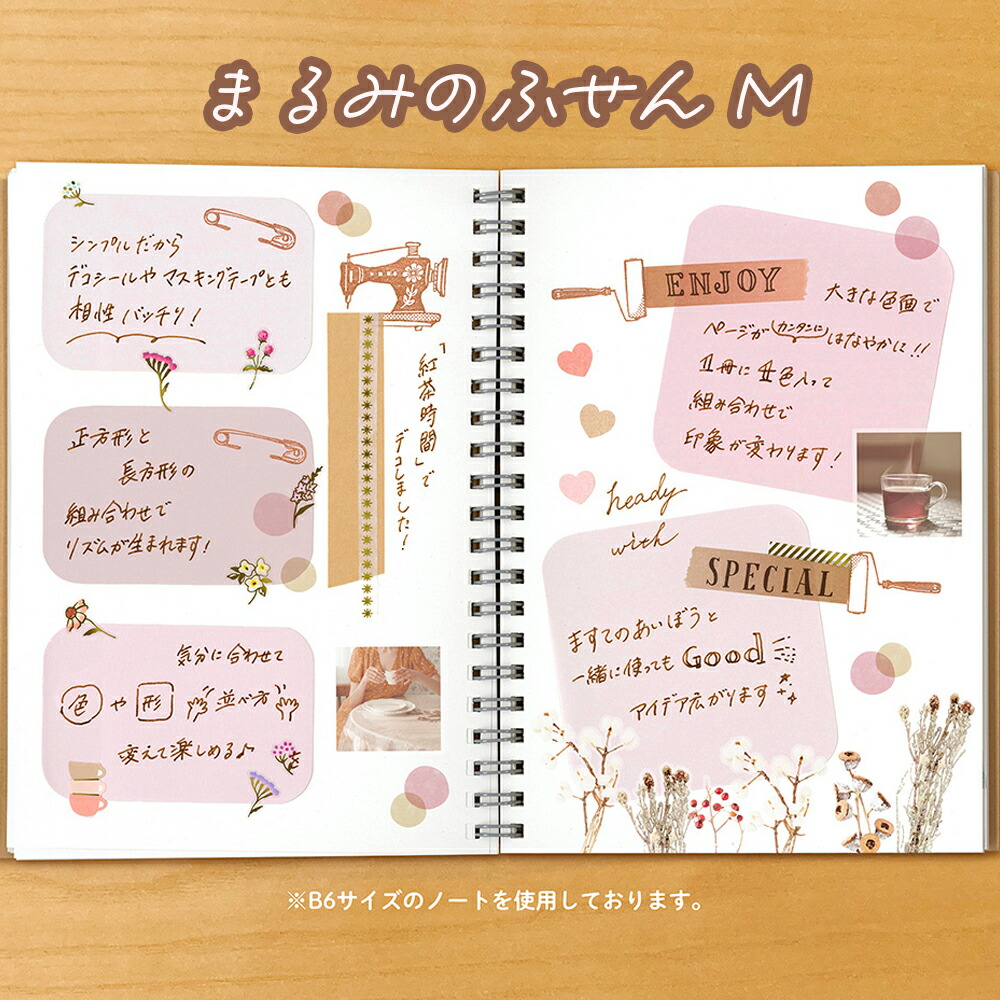 まるみのふせん M
シンプルだから
デコシールや マスキングテープとも
相性 バッチリ!
正方形と
長方形の
組み合わせで
リズムが生まれます!
気分に合わせて
色 や 形 並べ方
変えて楽しめる♪
「紅茶時間」で
デコしました!
ENJOY
大きな色面で
ページが カンタンに はなやかに!!
1冊に 4色入って
組み合わせで
印象が変わります!
heady
with
SPECIAL
ますてのあいぼうと
一緒に使っても Good
アイデア広がります
※B6サイズのノートを使用しております。